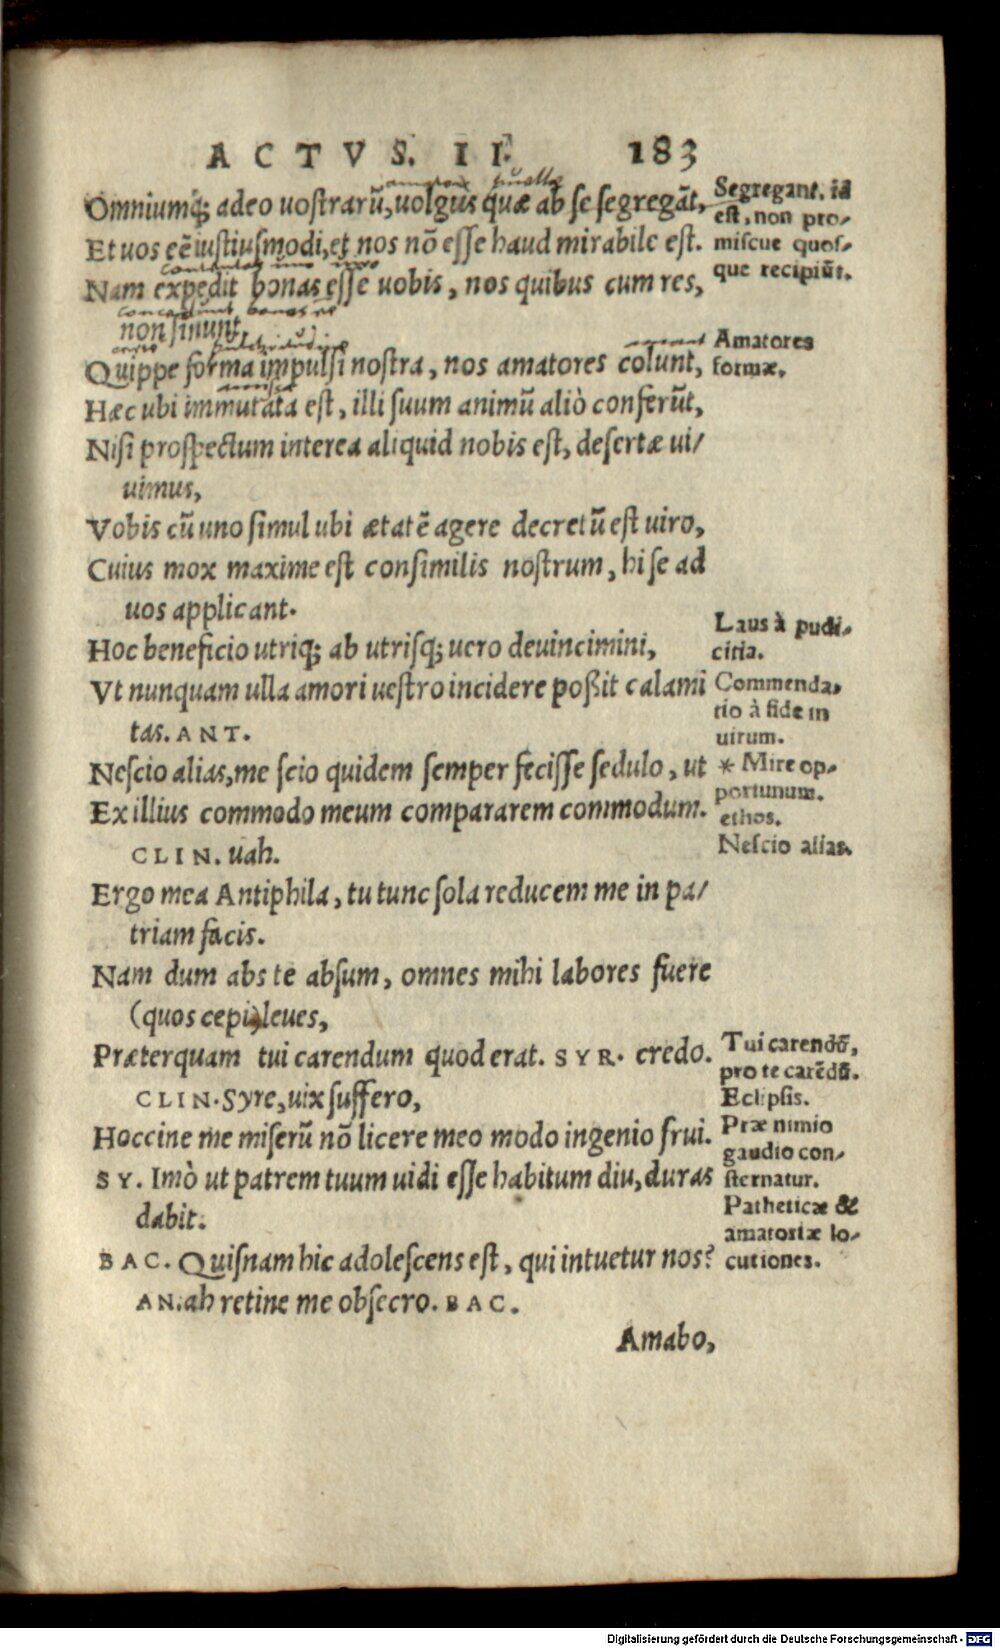 ACTVS. II. 183
Omniumq́; adeo uostrarū, uolgus quæ ab se segregāt,
Et uos eē iustiusmodi, et nos nō esse haud mirabile est.
Nam expedit bonas esse uobis, nos quibus cum res,
non sinunt,
Quippe forma impulsi nostra, nos amatores colunt,
Hæc ubi immutata est, illi suum animū aliò conferūt,
Nisi prospectum interea aliquid nobis est, desertæ ui/
uimus,
Vobis cū uno simul ubi ætatē agere decretū est uiro,
Cuius mox maxime est consimilis nostrum, hi se ad
uos applicant.
Hoc beneficio utriq; ab utrisq; uero deuincimini,
Vt nunquam ulla amori uestro incidere poßit calami
tas. ANT.
Nescio alias, me scio quidem semper fecisse sedulo, ut
Ex illius commodo meum compararem commodum.
CLIN. uah.
Ergo mea Antiphila, tu tunc sola reducem me in pa/
triam facis.
Nam dum abs te absum, omnes mihi labores fuere
(quos cepi) leues,
Præterquam tui carendum quod erat. SYR. credo.
CLIN. Syre, uix suffero,
Hoccine me miserū nō licere meo modo ingenio frui.
SY. Imò ut patrem tuum uidi esse habitum diu, duras
dabit.
BAC. Quisnam hic adolescens est, qui intuetur nos?
AN. ah retine me obsecro. BAC.
Amabo,
Segregant, id
est, non pro-
miscue quos-
que recipiūt.
Amatores
formæ.
Laus à pudi-
citia.
Commenda-
tio à fide in
uirum.
* Mire op-
portunum.
ethos.
Nescio alias.
Tui carendū,
pro te carēdū.
Eclipsis.
Præ nimio
gaudio con-
sternatur.
Patheticæ &
amatoriæ lo-
cutiones.
Digitalisierung gefördert durch die Deutsche Forschungsgemeinschaft - DFG